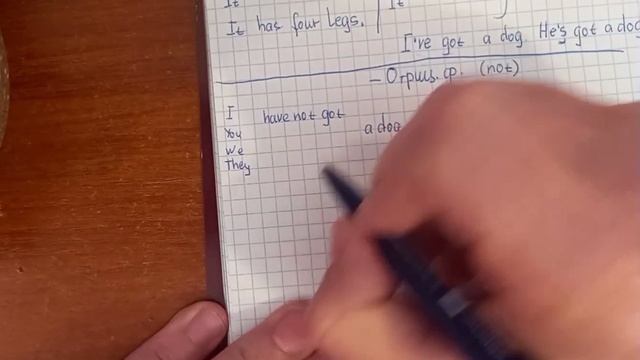 It
It has four legs. It
I've got a dog. He's got a dog
– Отриц. ср. (not)
I have not got
You a dog
We
They